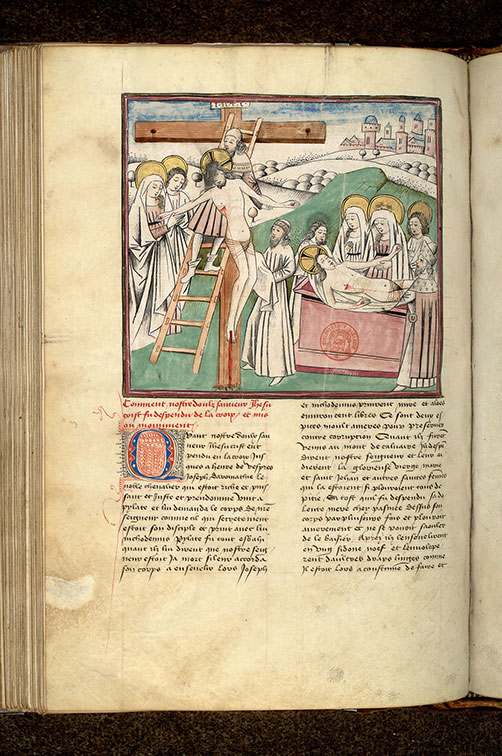 Comment nostre doulz sauveur Jhesu
crist fu despendu de la croix et mis
ou monument
Quant nostre doulz sau
veur Jhesucrist eut
pendu en la croix Jus
ques a heure de vespres
Joseph Davomathe le
noble chevalier qui estoit riche et puis
sant et Juste et preudomme vint a
pylate et luy demanda le corps de nre
seigneur comme cil qui secretement
estoit son disciple et print avec luy
nichodemus Pylate fu tout esbahi
quant ilz luy dirent que nostre seig
neur estoit Ja mort si leur accorda
son corps a ensevelir Lors Joseph
et nichodemus prinrent mirre et aloes
environ cent livres Ce sont deux es
pices moult ameres pour preserver
contre corruption Quant ilz furent
venus au mont de calvaire Joseph
nostre seigneur et leur ai
dierent la glorieuse vierge marie
et saint Jehan et autres saintes femmes
qui la estoient si plouroient tous de
pitie Et tost quil fu despendu sa do
lente mere cheut pasmee dessus son
corps par plusieurs fois et plouroit
amerement et ne se povoit saouler
de le baisier Apres ilz lensevelirent
en ung sidone noef et lenvelope
rent daultres draps linges comme
il estoit lors acoustume de faire et